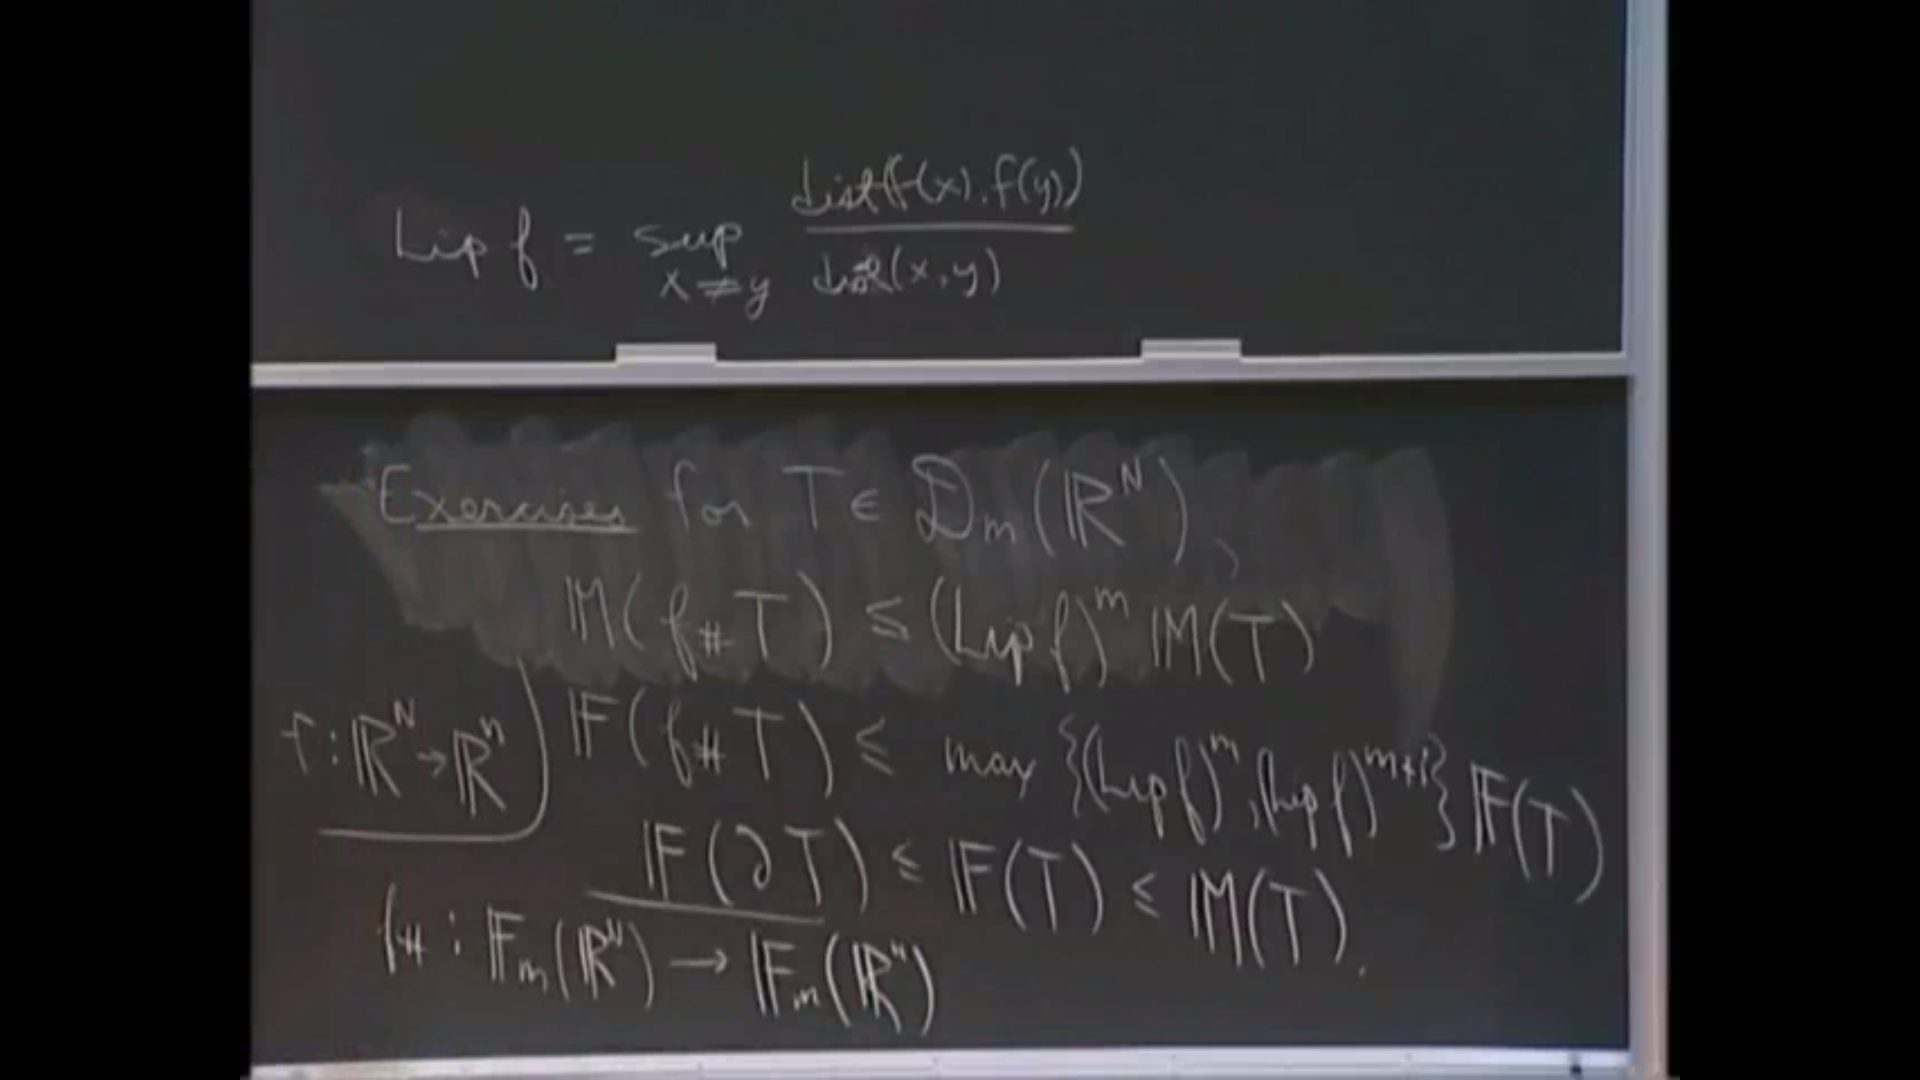 Lip f = sup_{x≠y} dist(f(x), f(y)) / dist(x, y)
Exercises for T ∈ 𝒟_m(ℝ^N),
𝕄(f_# T) ≤ (Lip f)^m 𝕄(T)
f : ℝ^N → ℝ^n
𝔽(f_# T) ≤ max {(Lip f)^m, (Lip f)^{m+1}} 𝔽(T)
𝔽(∂T) ≤ 𝔽(T) ≤ 𝕄(T).
f_# : 𝔽_m(ℝ^N) → 𝔽_m(ℝ^n)